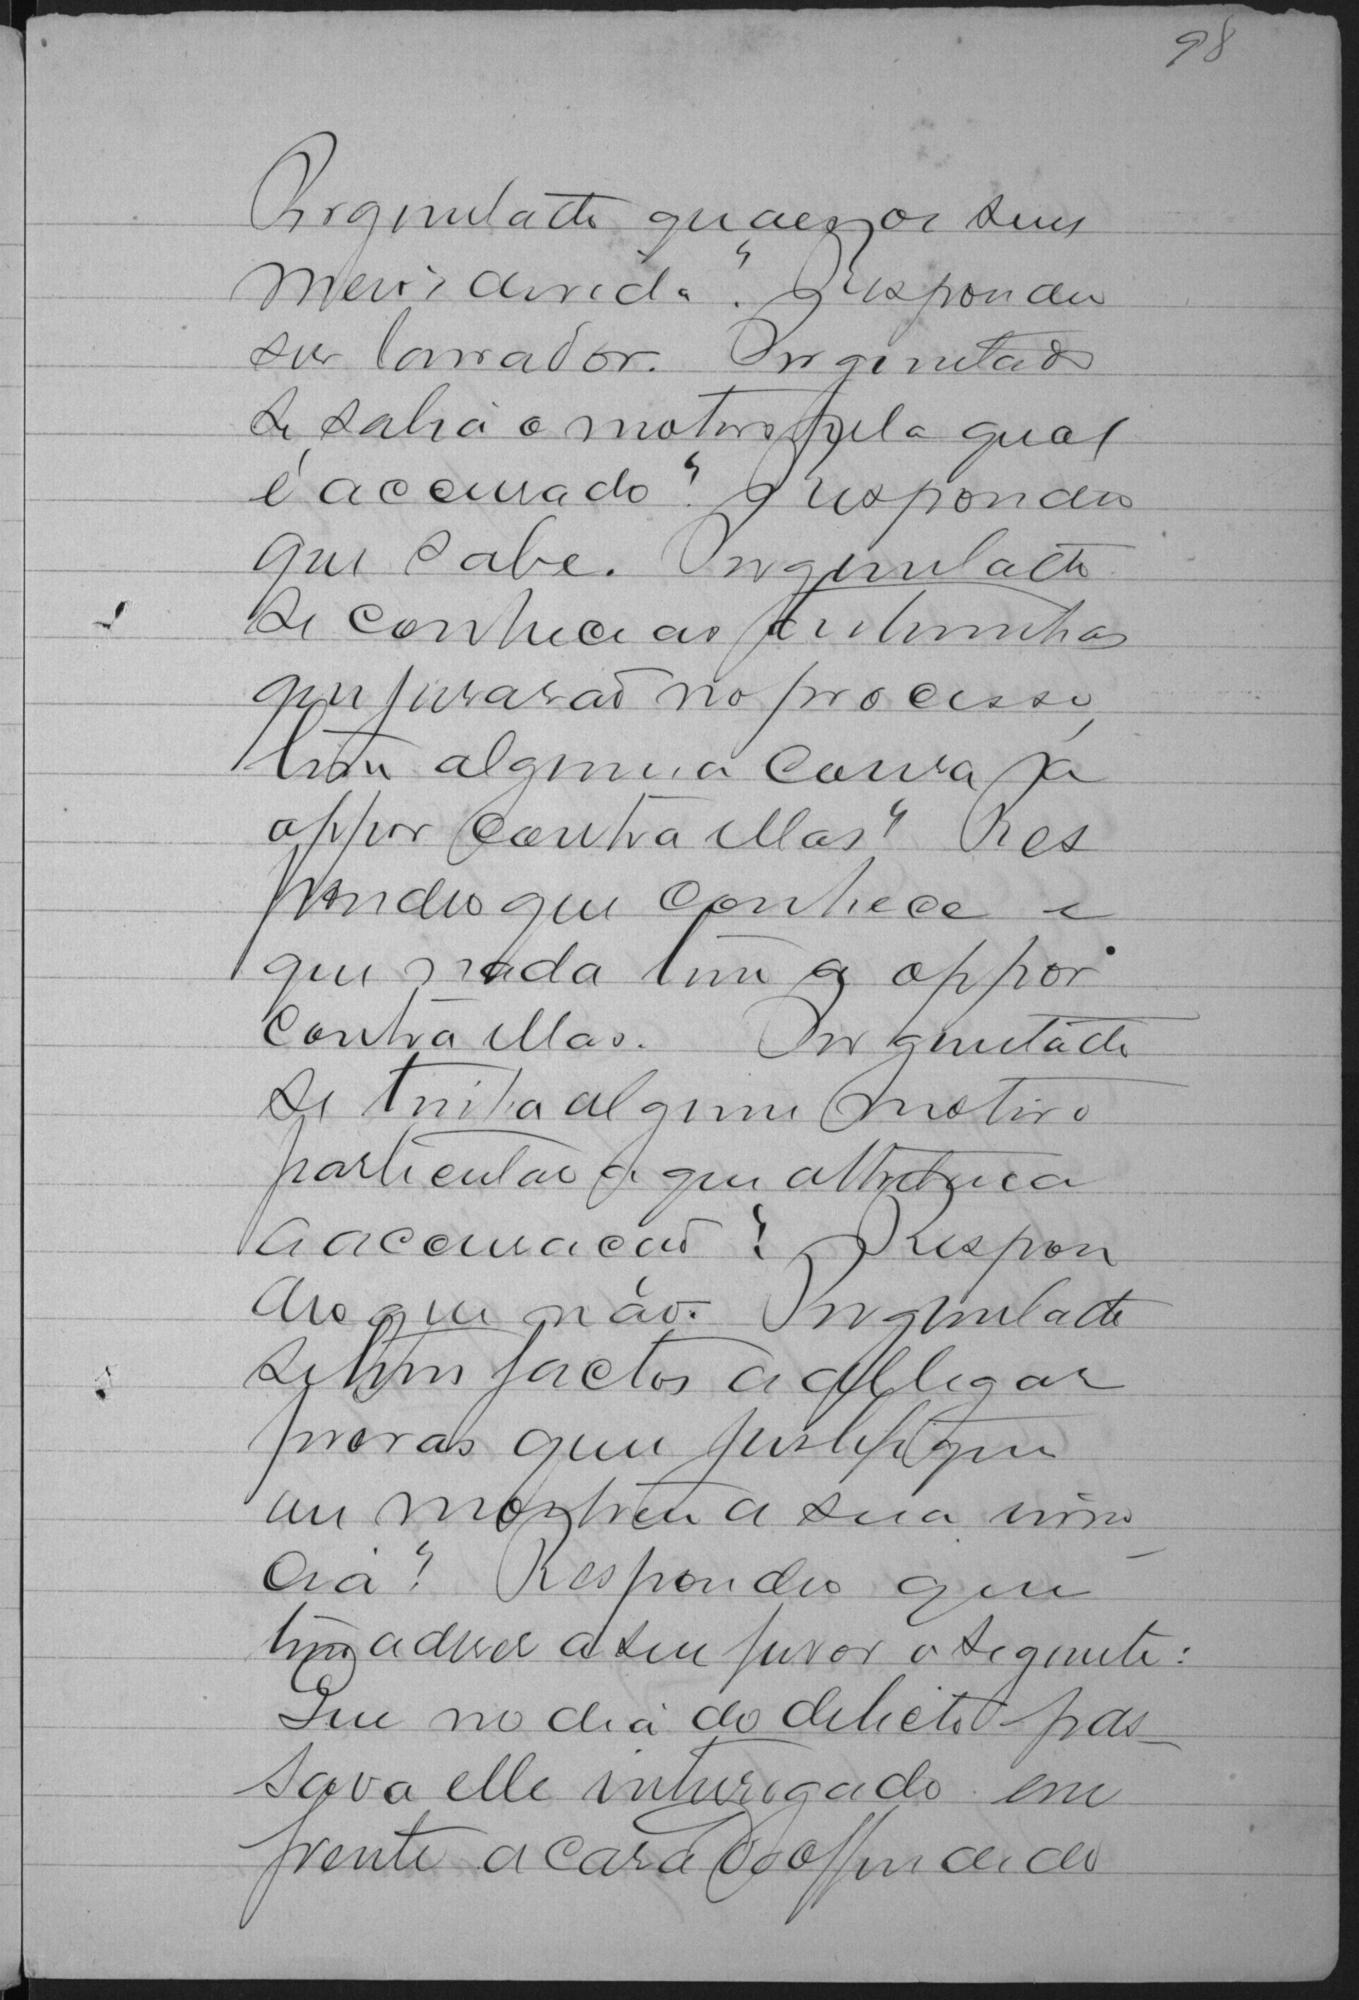 98
Perguntado quaes os seus
meios de vida? Respondeu
ser lavrador. Perguntado
se sabia o motivo pela qual
é accusado? Respondeu
que sabe. Perguntado
se conhece as testemunhas
que jurarão no processo,
tem alguma cousa a
oppor contra ellas? Res
pondeo que conhece e
que nada tem a oppor
contra ellas. Perguntado
se tinha algum motivo
particular a que attribua
a accusação? Respon
deo que não. Perguntado
se tem factos a allegar
provas que justifiquem
ou mostrem a sua inno
cia? Respondeo que
tem a dizer a seu favor o seguinte:
Que no dia do delicto pas_
sava elle interrogado em
frente a casa do offendido